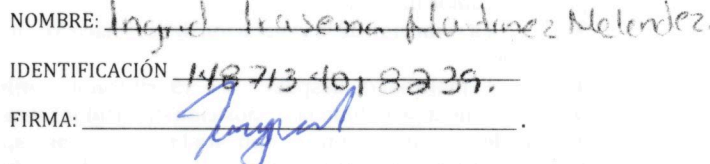 NOMBRE: Ingrid Irasema Martinez Melendez.
IDENTIFICACIÓN 1487134018239.
FIRMA: Ingrid.